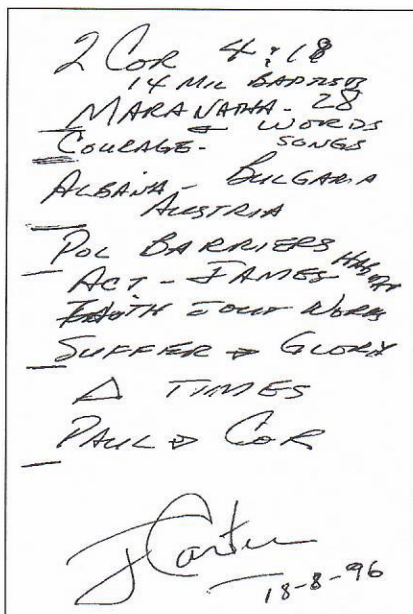 2 COR 4:18
14 MIL BAPTISTS
MARANATHA - 28
WORDS
COURAGE - SONGS
ALBANIA - BULGARIA
AUSTRIA
POL BARRIERS
ACT - JAMES
FAITH WORKS
SUFFER → GLORY
Δ TIMES
PAUL → COR
J Carter
18-8-96